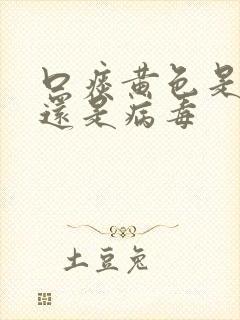 口痰黄色是
還是病毒
土豆兔